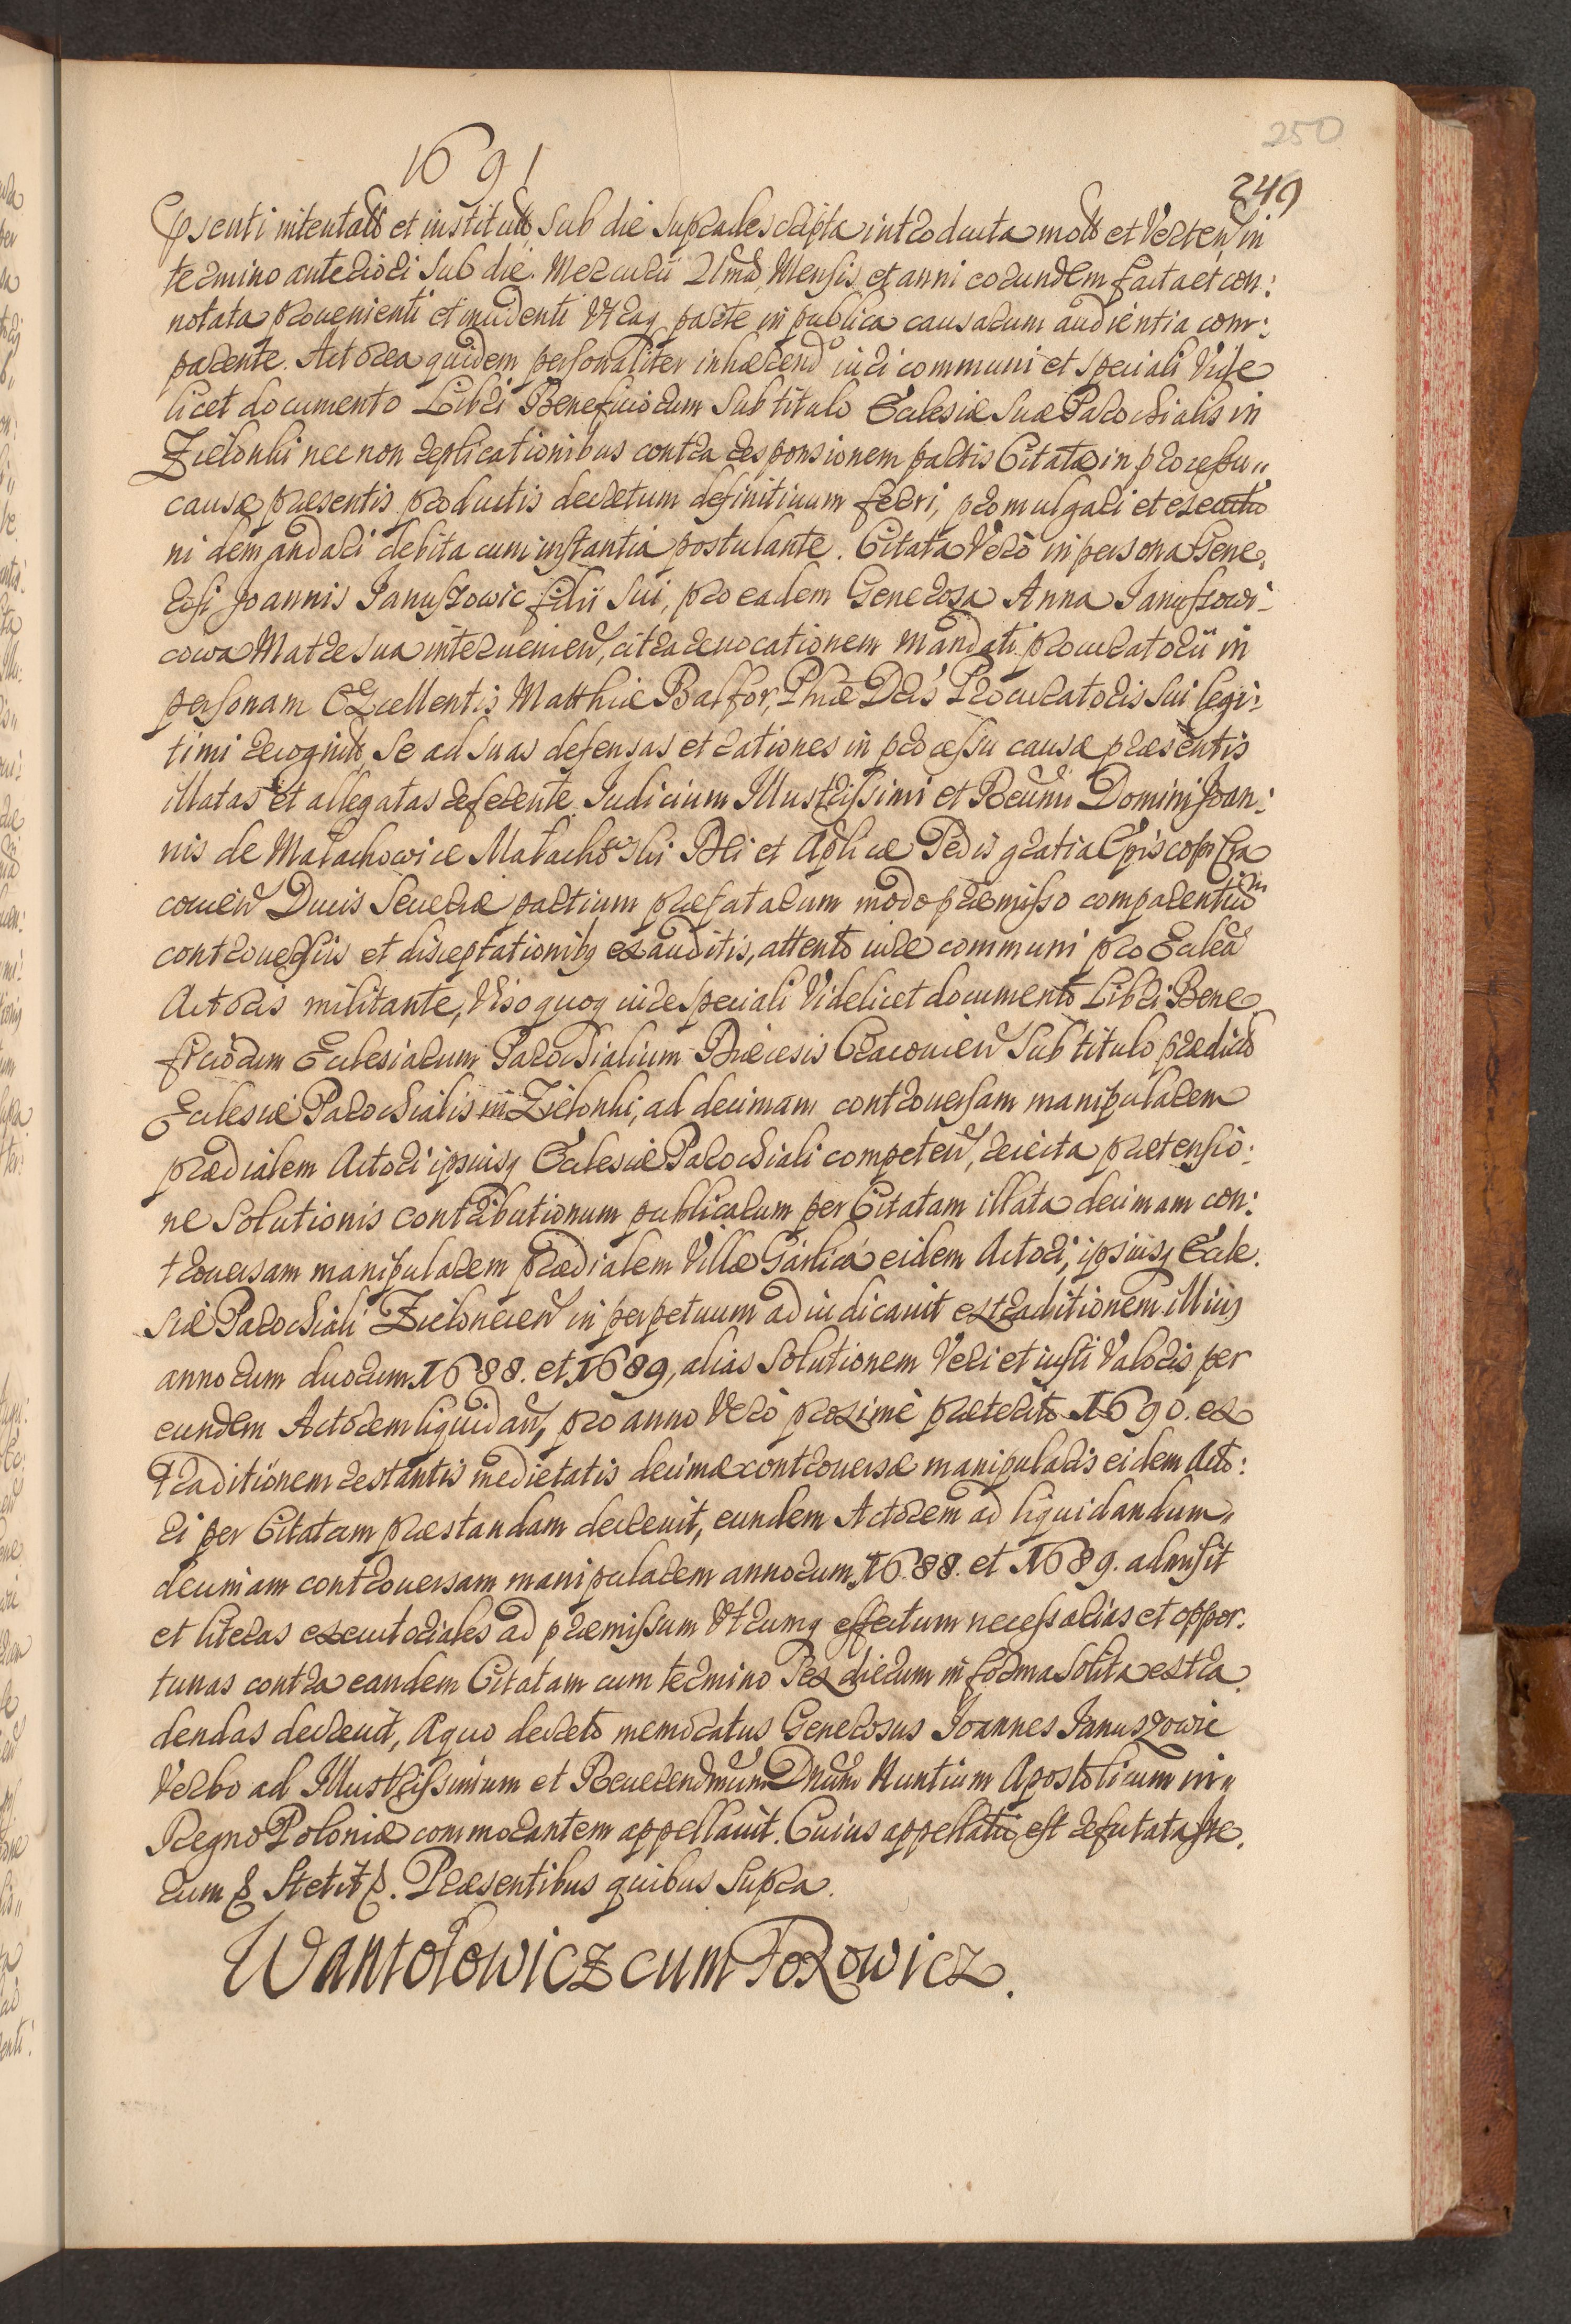 250
1691
249
Psenti intentatt et institutt, sub die supradescripta introducta mott et Verten, in
termino anteriori sub die Mercurii 21ma Mensis et anni eorundem facta et con:
notata provenienti et incidenti Utraq parte in publica causarum audientia com:
parente. Actorea quidem personaliter inhaerend iuri communi et speciali Vide
licet documento Libri Beneficiorum sub titulo Ecclesiae suae Parochialis in
Zielonki nec non replicationibus contra responsionem partis Citatae in processu
causae praesentis productis decretum definitivum ferri, promulgari et executio
ni demandari debita cum instantia postulante. Citata Vero in persona Gene
rosi Joannis Januszowic filii sui, pro eadem Generosa Anna Januszowi-
cowa Matre sua intervenien, citra revocationem mandati procuratorii in
personam Excellentis Matthiae Balfor, Phiae Dris Procuratoris sui legi:
timi recognitt, se ad suas defensas et rationes in processu causae praesentis
illatas et allegatas referente. Iudicium Illustrissimi et Reverndi Domini Joan:
nis de Małachowice Małachowski Dei et Aplicae Sedis gratia Episcopi Cra
covien Ducis Severiae partium praefatarum modo praemisso comparentium
controversiis et disceptationibq exauditis, attento iure communi pro Eccleā
Actoris militante, Viso quoq iure speciali Videlicet documento Libri Bene
ficiorum Ecclesiarum Parochialium Diaecesis Cracovien sub titulo praedicto
Ecclesiae Parochialis in Zielonki, ad decimam controversam manipularem
praedialem Actori ipsiusq Ecclesiae Parochiali competen, reiecta praetensio:
ne solutionis contributionum publicarum per Citatam illata decimam con:
troversam manipularem praedialem Villae Garlica eidem Actori, ipsiusq Eccle.
siae Parochiali Zielonecen in perpetuum adiudicavit extraditionem illius
annorum duorum 1688. et 1689, alias solutionem Veri et iusti Valoris per
eundem Actorem liquidan, pro anno Vero proxime praeterito 1690. ex
traditionem restantis medietatis decimae controversae manipularis eidem Acto:
ri per Citatam praestandam decrevit, eundem Actorem ad liquidandum
decimam controversam manipularem annorum 1688. et 1689. admisit
et literas executoriales ad praemissum Utrumq effectum necessarias et oppor:
tunas contra eandem Citatam cum termino Sex dierum in forma solita extra
dendas decrevit, A quo decreto memoratus Generosus Joannes Januszowic
Verbo ad Illustrissimum et Reverendmum Dnum Nuntium Apostolicum in
Regno Poloniae commorantem appellavit. Cuius appellatio est refutata
rum & Stetit &. Praesentibus quibus supra.
Wantołowicz cum Foxowicz.